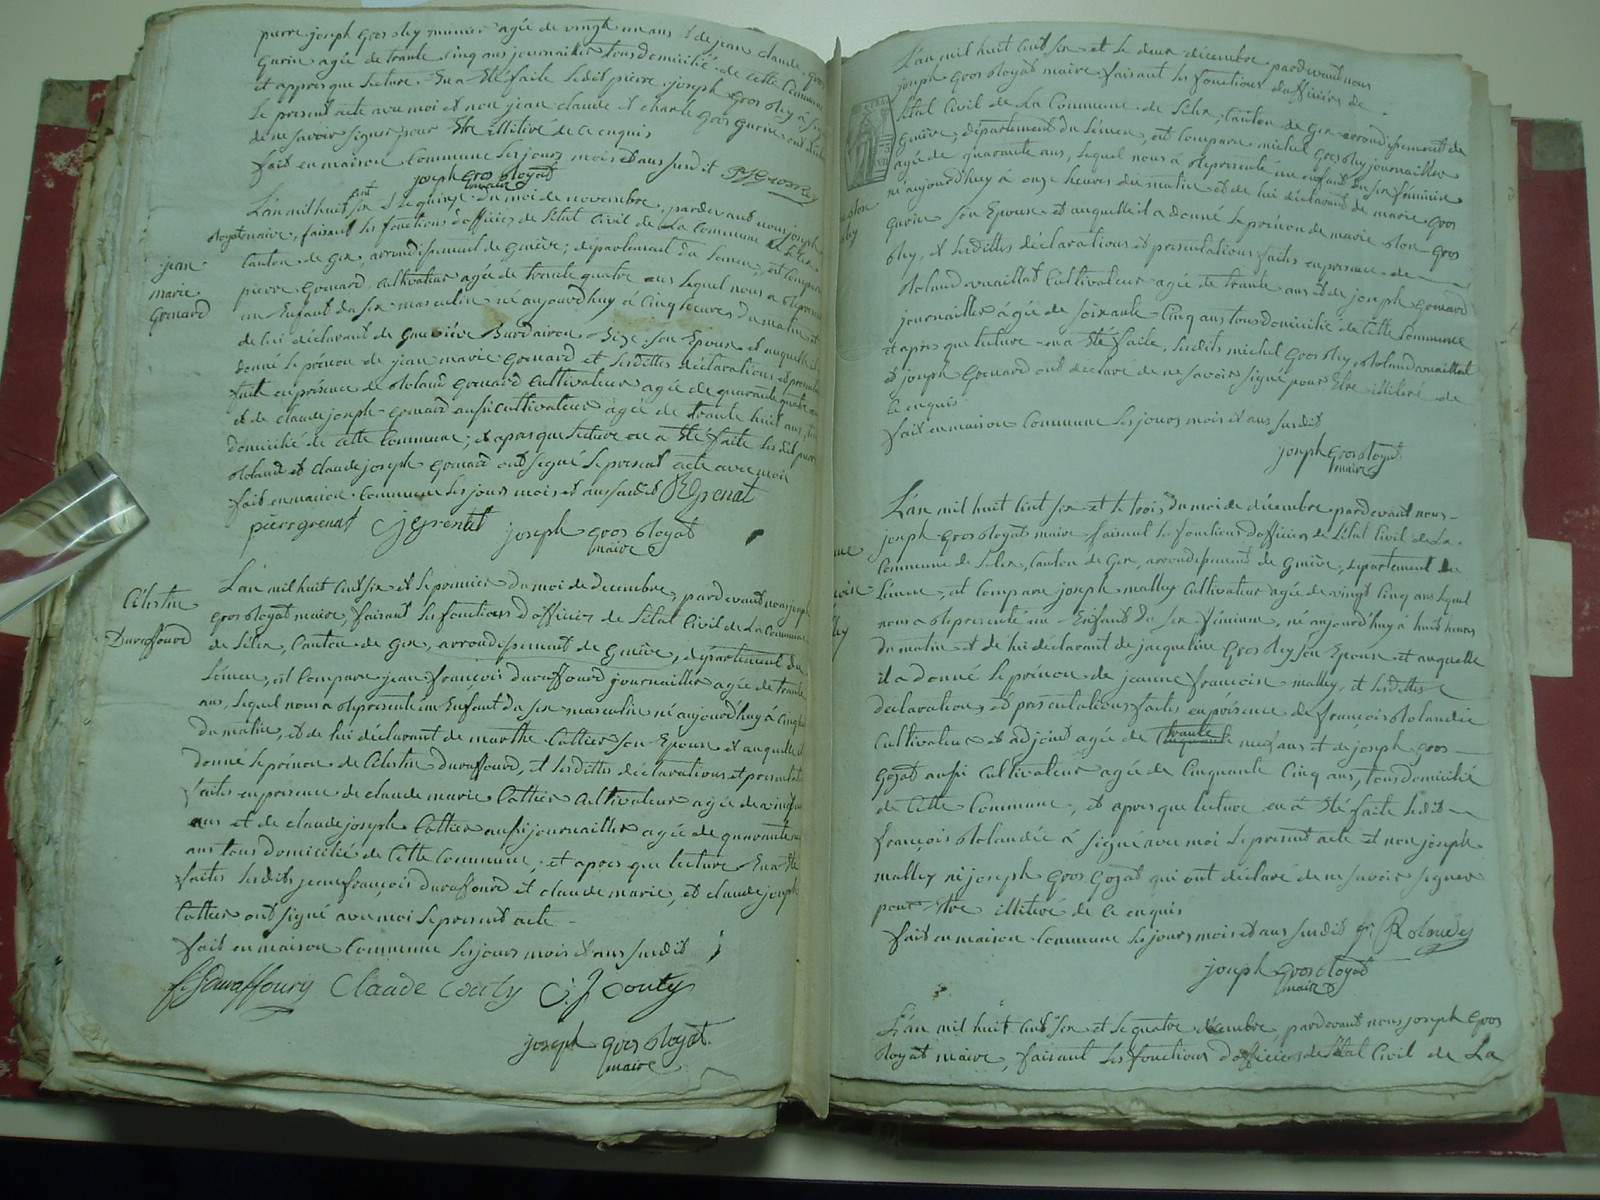 pierre joseph Gros ley munier agée de vingt un ans & de jean claude Gros
Gurin agée de trante cinq ans journailier tous domicilié de cette Commune
et appres que lecture en a été faite ledit pierre joseph Gros ley à
le present acte avec moi et non jean claude et charle Gros Gurin ont
de ne savoir signer pour être illitiré de ce enquis
fait en maison Commune les jours mois et ans susdit
joseph Gros Royat
maire
L'an mil huit cent six & le quinze du moi de novembre, pardevant nous joseph
Royat maire, faisant les fonctions d'officier de l'état civil de la Commune de Lélex
Canton de Gex, arrondisement de Genève; département du Léman, est comparu
jean
marie
Grenard
pierre Grenard Cultivateur agée de trente quatre ans lequel nous a représenté
un Enfant du sex masculin né aujourd'huy à cinq heures du matin et
de lui déclarant de Son Epouse et auquel il
donné le prénon de jean marie Grenard et lesdittes déclarations et
faite en présence de Roland Grenard Cultivateur agée de quarante quatre ans
et de claude joseph Grenard aussi cultivateur agée de trante huit ans,
domicilié de cette Commune; et apres que lecture en a été faite lesdit pierre
Roland et claude joseph Grenard ont signé le present acte avec moi
fait en maison Commune les jours mois et ans susdit R Grenat
pierre grenat C j grenat joseph Gros Royat
maire
Célestin
Duraffourd
L'an mil huit cent six et le premier du moi de decembre, pardevant nous joseph
Gros Royat maire, faisant les fonctions d'officier de l'état civil de La Commune
de Lélex, Canton de Gex, arrondisement de Genève, département du
Léman, est Comparu jean françois duraffourd journailier agée de trante
ans, lequel nous a représenté un Enfant du sex masculin né aujourd'huy à cinq
du matin, et de lui déclarant de marthe Cottier Son Epouse et auquel il
donné le prénon de Célestin duraffourd, et lesdittes déclarations et
faites en présence de claude marie Cottier Cultivateur agée de vingt
ans et de claude joseph Cottier aussi journailier agée de quarante
ans tous domicilié de cette commune; et apres que lecture En a été
faites lesdits jean françois duraffourd et claude marie, et claude joseph
Cottier ont signé avec moi le present acte
fait en maison Commune les jours mois et ans susdit
f. Duraffourg Claude Couty C. J Couty
joseph Gros Royat
maire
L'an mil huit cent six et le deux décembre pardevant nous
joseph Gros Royat maire faisant les fonctions d'officier de
l'état Civil de La Commune de Lélex, Canton de Gex arrondisement de
Genève, département du Léman, est Comparu michel Gros ley journailier
agée de quarante ans, lequel nous a représenté un enfant du sex féminin
né aujourd'huy à onze heures du matin et de lui déclarant de marie Gros
Gurin Son Epouse et auquelle il a donné le prénon de marie Gros
ley, et lesdittes déclarations et presentations faites en presence de
Roland vuaillat Cultivateur agée de trante ans et de joseph Grenard
journailier agée de soixante cinq ans tous domicilié de cette Commune
et après que lecture en a été faite, lesdits michel Gros ley, Roland vuaillat
et joseph Grenard ont déclaré de ne savoir signé pour Etre illitiré de
ce enquis
fait en maison Commune les jours mois et ans susdit
joseph Gros Royat
maire
L'an mil huit cent six et le trois du moi de décembre pardevant nous
joseph Gros Royat maire faisant les fonctions d'officier de l'état Civil de La
Commune de Lélex, Canton de Gex, arrondisement de Genève, département du
Léman, est Comparu joseph malley Cultivateur agée de vingt cinq ans lequel
nous a représenté un Enfant du sex féminin, né aujourd'huy à huit heures
du matin et de lui déclarant de jacqueline Gros ley Son Epouse et auquelle
il a donné le prénon de jeanne françoise malley, et lesdittes
déclarations, et présentations faites en présence de françois Rolandée
Cultivateur et adjoint agée de trante neuf ans et de joseph Gros
Gozat aussi cultivateur agée de cinquante cinq ans, tous domicilié
de cette Commune, et apres que lecture en a été faite ledit
françois Rolandée à signé avec moi le present acte et non joseph
malley ni joseph Gros Gozat qui ont déclaré de ne savoir signer
pour être illitiré de ce enquis
fait en maison Commune les jours mois et ans susdit fr. Rolandez
joseph Gros Royat
maire
L'an mil huit cent six et le quatre décembre pardevant nous joseph Gros
Royat maire, faisant les fonctions d'officier de l'état Civil de La